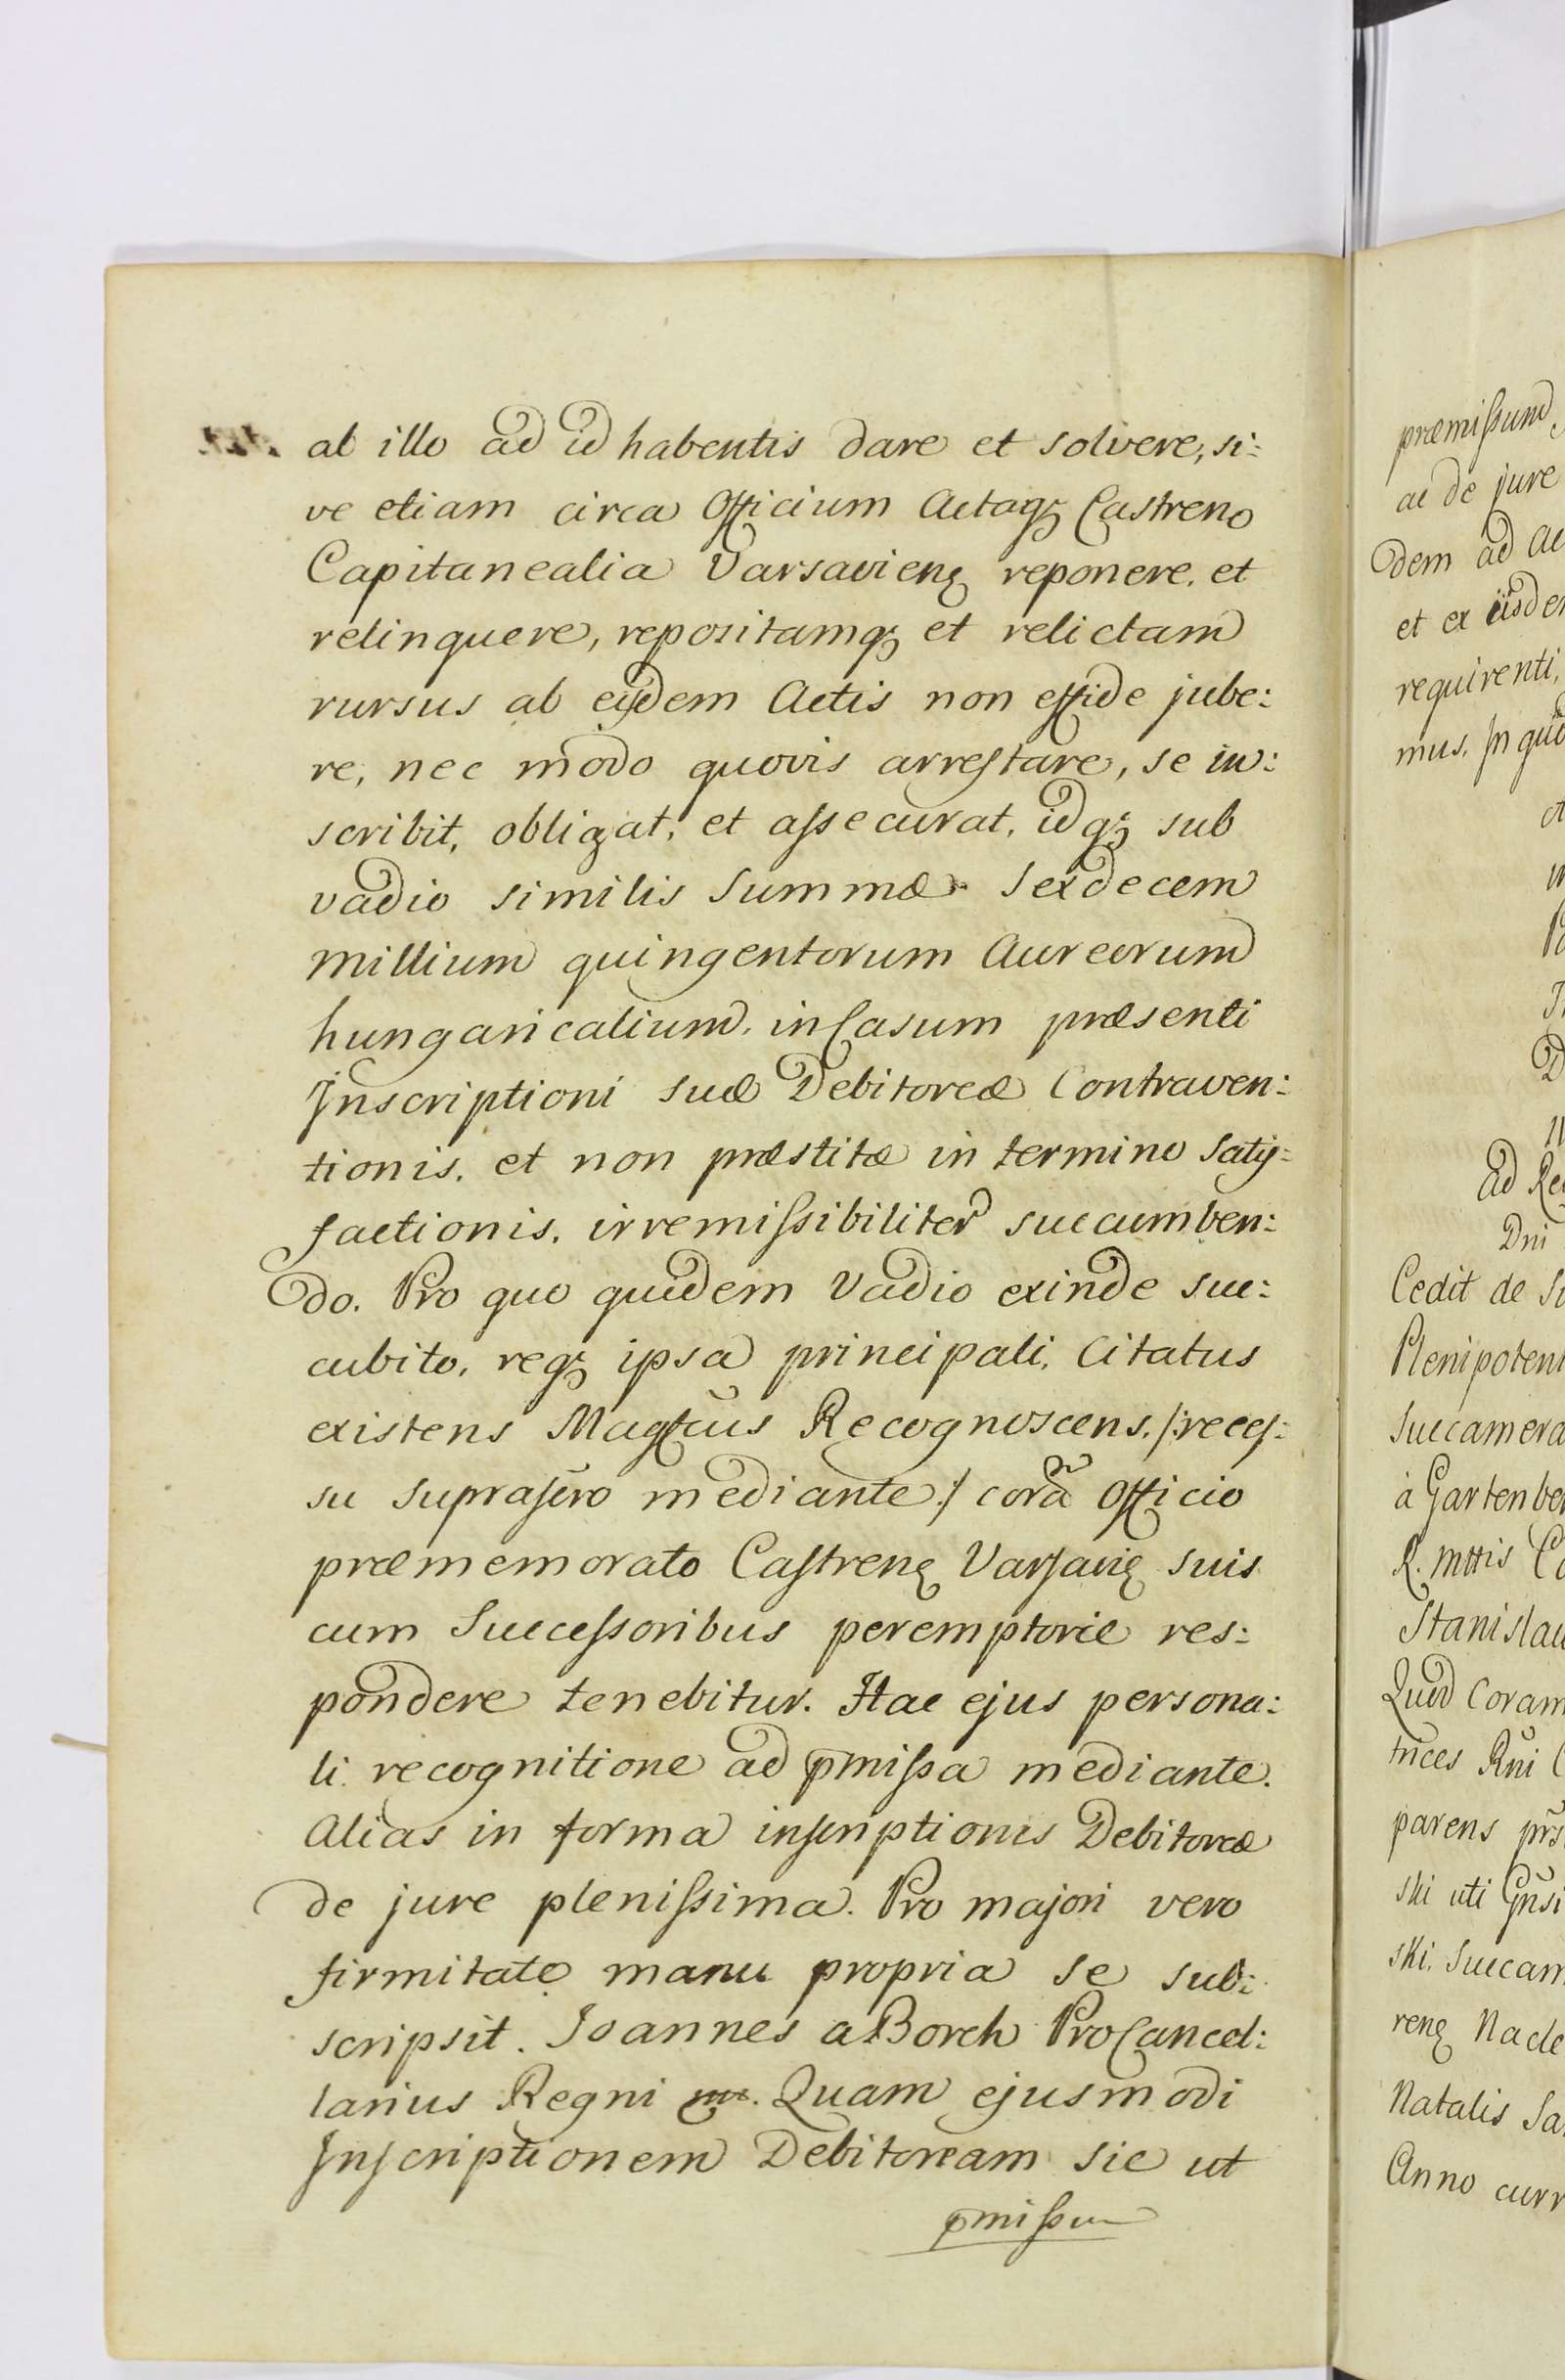 ab illo ad id habentis dare et solvere, si:
ve etiam circa Officium Actaqꝫ Castreno
Capitanealia Varsavienꝫ reponere. et
relinquere, repositamqꝫ et relictam
rursus ab eisdem Actis non effide jube:
re, nec modo quovis arrestare, se in:
scribit, obligat, et assecurat, idqꝫ sub
vadio similis Summæ Sexdecem
millium quingentorum Aureorum
hungaricalium, in Casum præsenti
Inscriptioni suæ Debitoreæ Contraven:
tionis, et non præstitæ in termino Satis:
factionis, irremissibiliter succumben:
do. Pro quo quidem Vadio exinde suc:
cubito, reqꝫ ipsa principali, Citatus
existens Magcus Recognoscens, /: reces:
su suprascro mediante :/ corã Officio
præmemorato Castrenꝫ Varsavieꝫ suis
cum Successoribus peremptorie res:
pondere tenebitur. Hac ejus persona:
li recognitione ad pmissa mediante.
Alias in forma inscriptionis Debitoreæ
de jure plenissima. Pro majori vero
firmitate manu propria se sub:
scripsit. Joannes a Borch ProCancel:
larius Regni mr. Quam ejusmodi
Inscriptionem Debitoream sic ut
pmissum
præmissum
ac de jure
dem ad Ac
et ex iisdem
requirenti,
mus. In quo
Ad Rec
Dni
Cedit de S
Plenipotent
Succamera
à Gartenber
R. Mttis Co
Stanislau
Quod Coram
trices Rni C
parens prs
ski uti Gnsi
ski. Succam
renꝫ Nacle
Natalis Sa
Anno curr